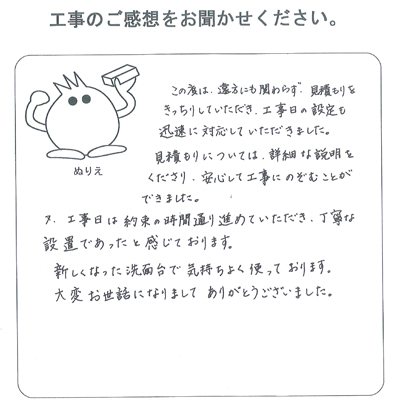 工事のご感想をお聞かせください。
この度は、遠方にも関わらず、見積もりを
きっちりしていただき、工事日の設定も
迅速に対応していただきました。
見積もりについては、詳細な説明を
くださり、安心して工事にのぞむことが
できました。
ぬりえ
又、工事日は約束の時間通り進めていただき、丁寧な
設置であったと感じております。
新しくなった洗面台で気持ちよく使っております。
大変お世話になりまして ありがとうございました。